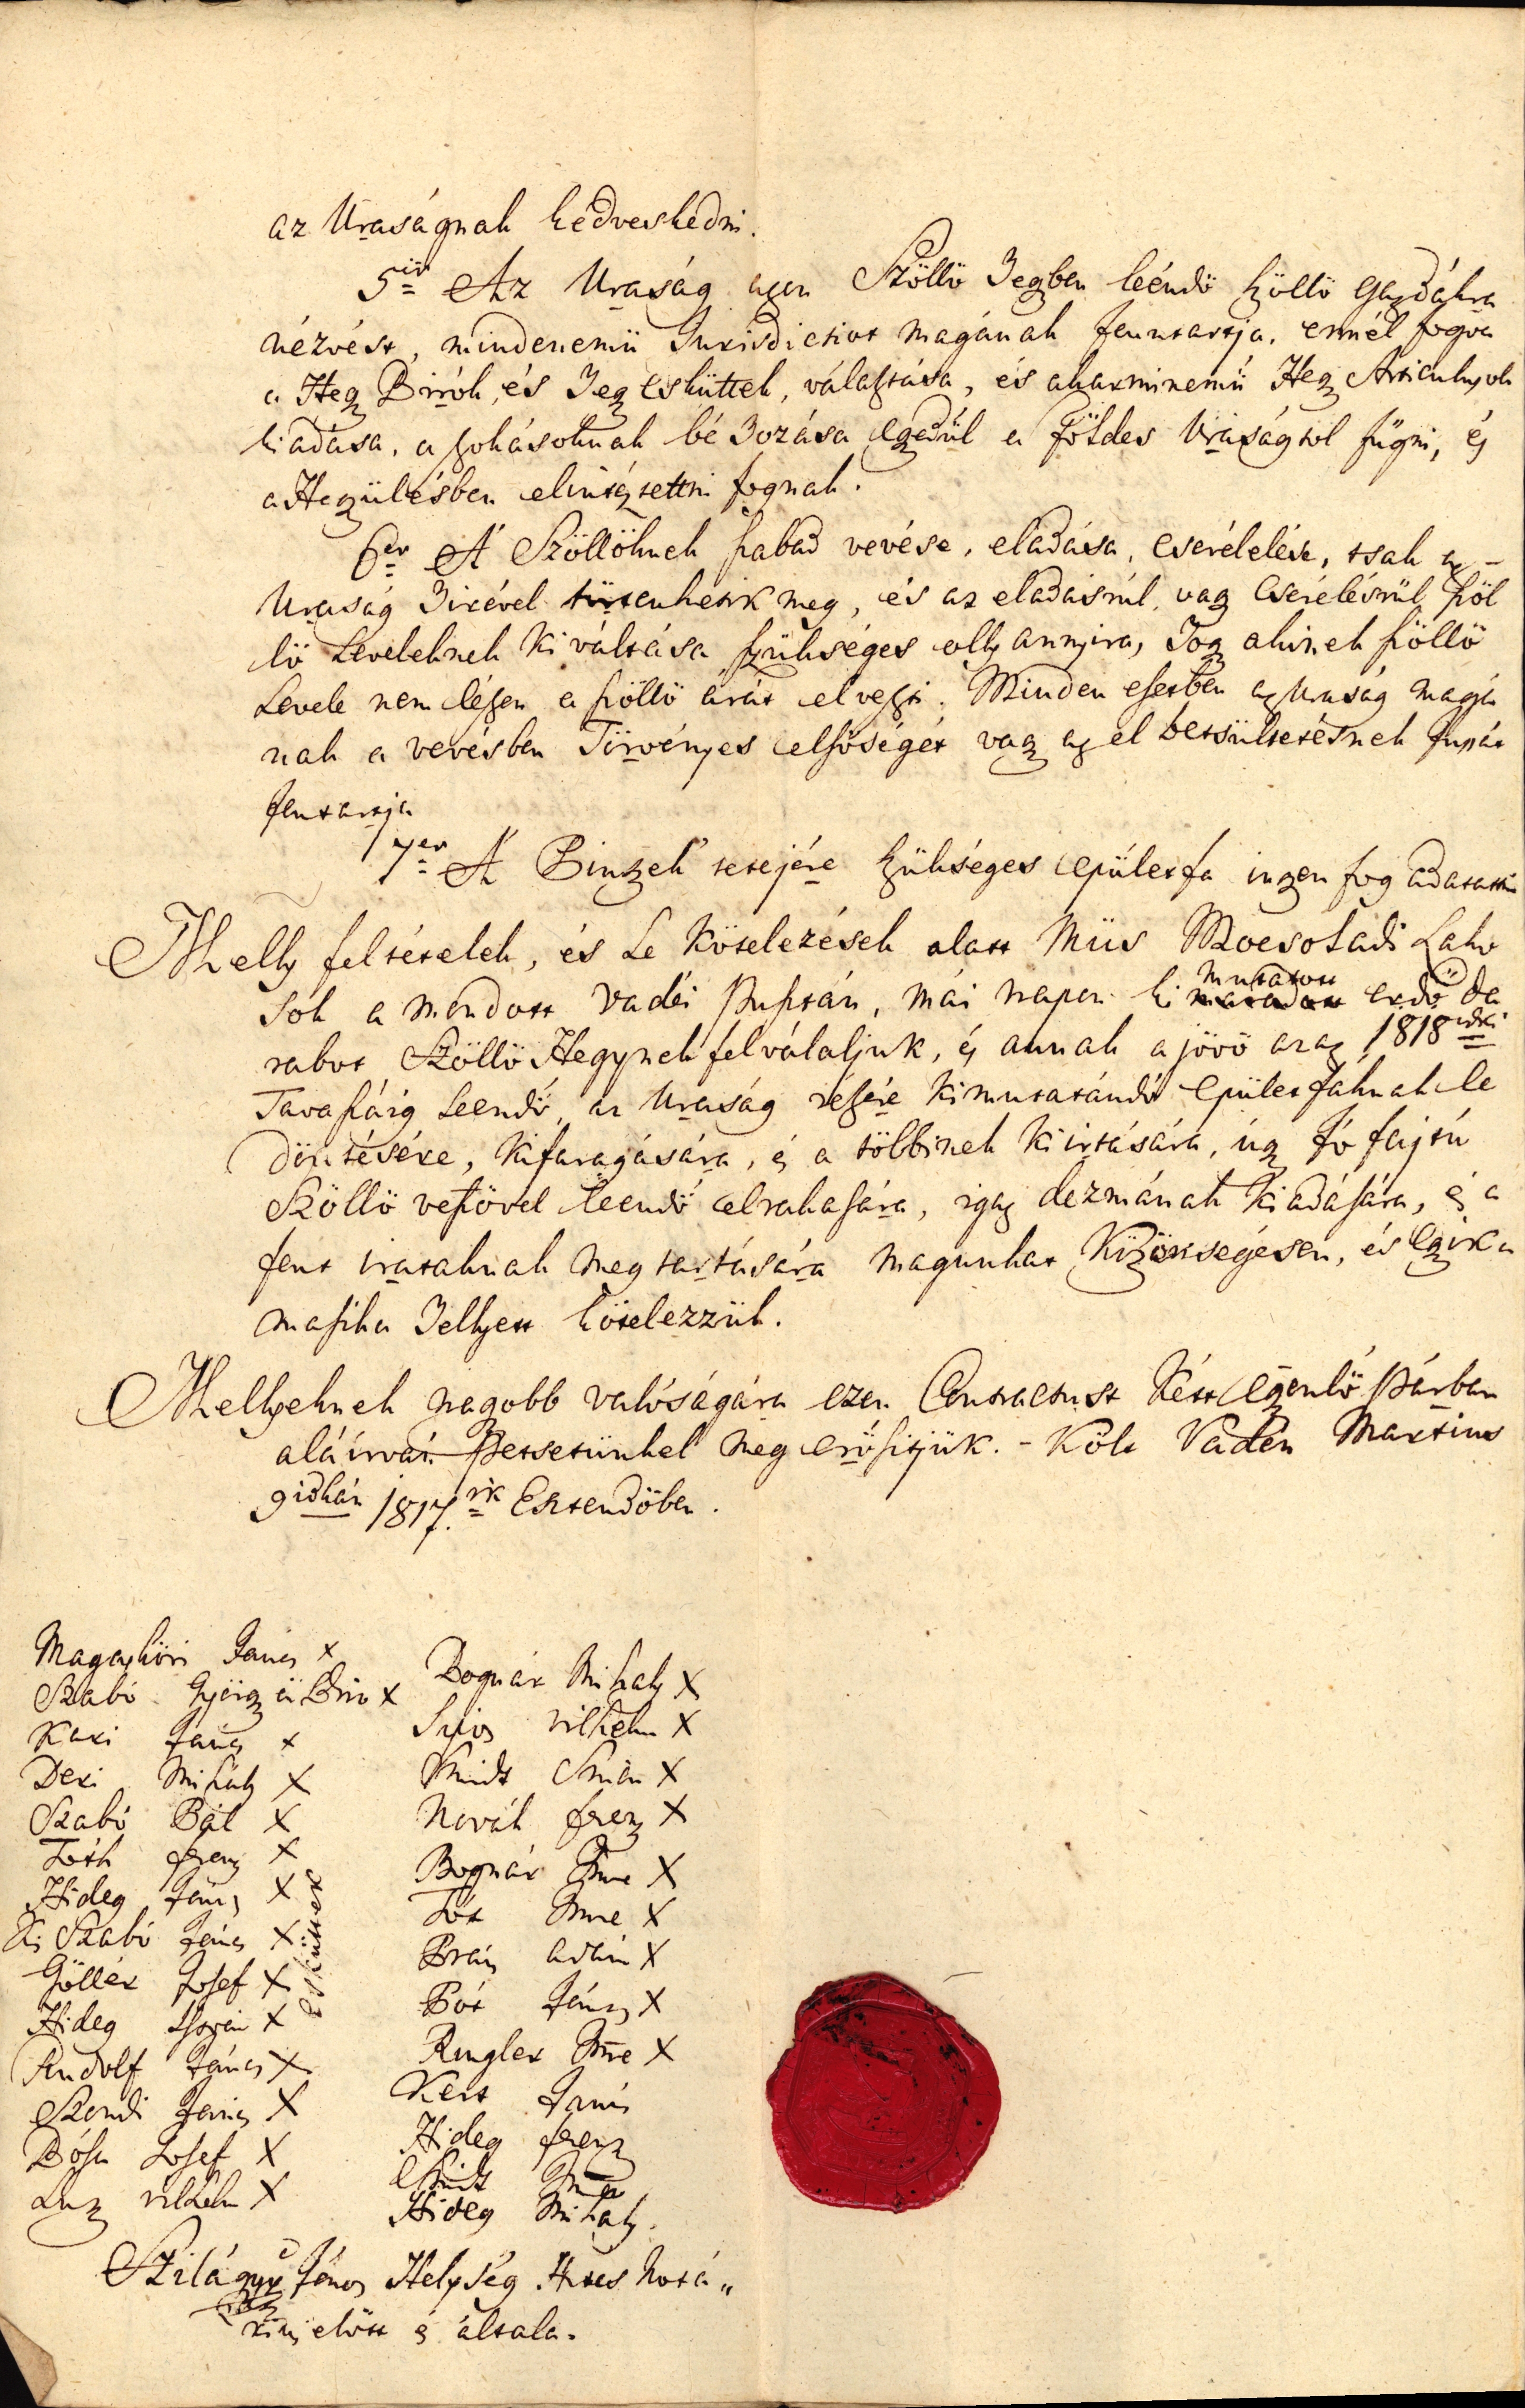 az Uraságnak kedveskedni.
5ör Az Uraság azon Szöllö Hegyben léendö szöllö Gazdákra
nézvést, mindenemü Jurisdictiot magának fenntartja, ennél fogva
a Hegy Birók, és Hegy Esküttek, választása, és akarminemü Hegy Articulusok
kiadása, a szokásoknak bé hozása egyedül a földes Uraságtol fügni, és
a Hegyülésben elintéztettni fognak.
6er A Szöllöknek szabad vevése, eladása, cserélelése, tsak az
Uraság hirével törtenhetik meg, és az eladásrúl, vagy Cserélésrül szöl
lö Leveleknek kiváltása szükséges olly annyira, hogy akinek szöllö
Levele nem lészen a szöllö árát elveszti. Minden esetben az Uraság magá
nak a vevésben Törvényes elsöségét vagy az el betsültetésnek jussát
fentartja
7er A Pinczék tetejére szükséges épületfa ingyen fog adatattni
Melly feltételek, és Le kötelezések alatt Miis Mocsoládi Lako
sok a mondott Vadéi Pusztán, mái napon ki mutatott erdö da
rabot Szöllö Hegynek felválaljuk, és annak a jövö azaz 1818diki
Tavaszáig Leendö, az Uraság részére kimutatándó épületfáknak le
döntésére, kifaragására, és a többinek kiirtására, úgy jó fajtú
Szöllö veszövel leendö elrakására, igaz dézmának kiadására, és a
fent irataknak megtartására magunkat Közönségesen, és Egyik a
masika hellyett kötelezzük.
Mellyeknek nagyobb valóságára ezen Contractust két egyenlö Párban
aláirván Petsetünkel meg erösitjük. - Költ Vadén Martius
9idkán 1817.ik Esztendöben.
Magasköri János x
Szabó György ö Biro x
Kari János x
Deri Mihály X
Szabó Pál X
Tóth Ferenz X
Hideg János X
Kis Szabó János X
Göller Josef X
Hideg István X
Rudolf János X
Szendi János X
Dósa Josef X
Luz vilhelm X
Esküttek
Bognár Mihaly X
Sipos vilhelm X
Smidt Simon X
Novák ferenz X
Bognár Imre X
Tót Imre X
Prais adám X
Pór János X
Ringler Imre X
Kert János
Hideg ferenz
Smidt Imre
Hideg Mihaly.
Szilágyi János Helység Hites Notá„
riussa elött és általa.